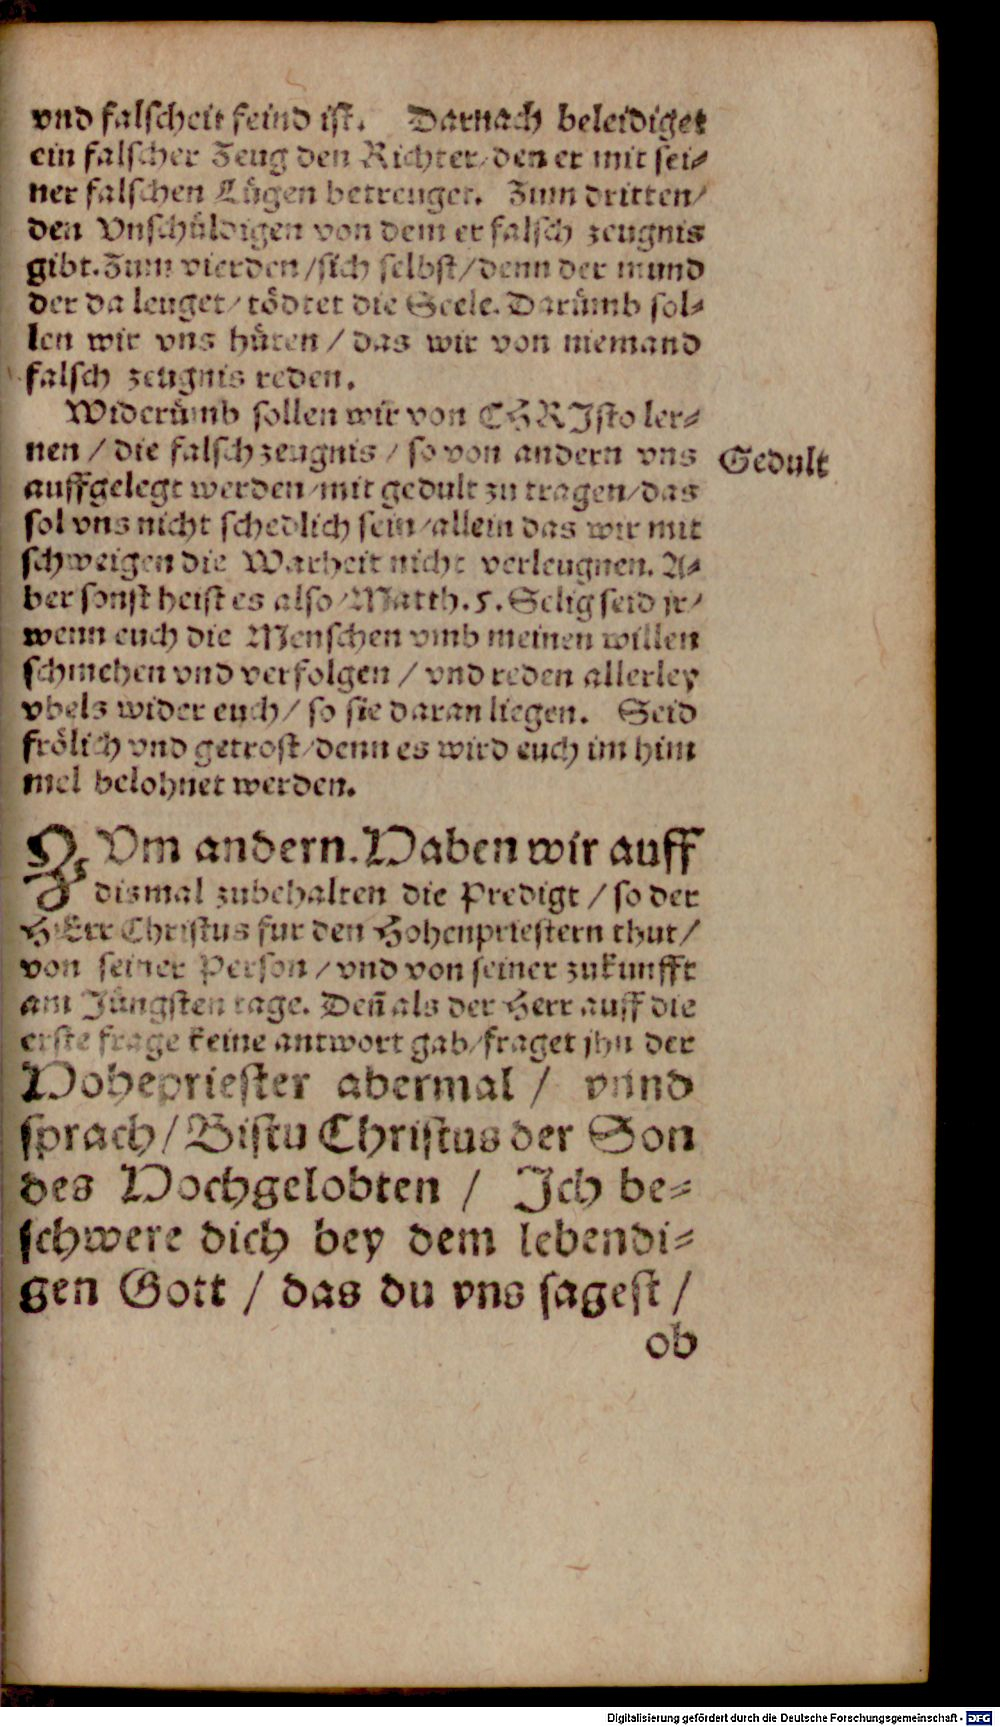 vnd falscheit feind ist. Darnach beleidiget
ein falscher Zeug den Richter/den er mit sei-
ner falschen Lůgen betreuget. Zum dritten/
den Vnschůldigen von dem er falsch zeugnis
gibt. Zum vierden/sich selbst/denn der mund
der da leuget/tödtet die Seele. Darůmb sol-
len wir vns hůten / das wir von niemand
falsch zeugnis reden.
Widerůmb sollen wir von CHRJsto ler-
nen / die falsch zeugnis / so von andern vns
Gedult
auffgelegt werden/mit gedult zu tragen/das
sol vns nicht schedlich sein/allein das wir mit
schweigen die Warheit nicht verleugnen. A-
ber sonst heist es also/Matth. 5. Selig seid jr/
wenn euch die Menschen vmb meinen willen
schmehen vnd verfolgen / vnd reden allerley
vbels wider euch/ so sie daran liegen. Seid
frölich vnd getrost/denn es wird euch im him
mel belohnet werden.
ZVm andern. Haben wir auff
dismal zubehalten die Predigt / so der
HErr Christus fur den Hohenpriestern thut/
von seiner Person / vnd von seiner zukunfft
am Jůngsten tage. Deñ als der Herr auff die
erste frage keine antwort gab/fraget jhn der
Hohepriester abermal / vnnd
sprach/ Bistu Christus der Son
des Hochgelobten / Jch be-
schwere dich bey dem lebendi-
gen Gott / das du vns sagest /
ob
Digitalisierung gefördert durch die Deutsche Forschungsgemeinschaft - DFG